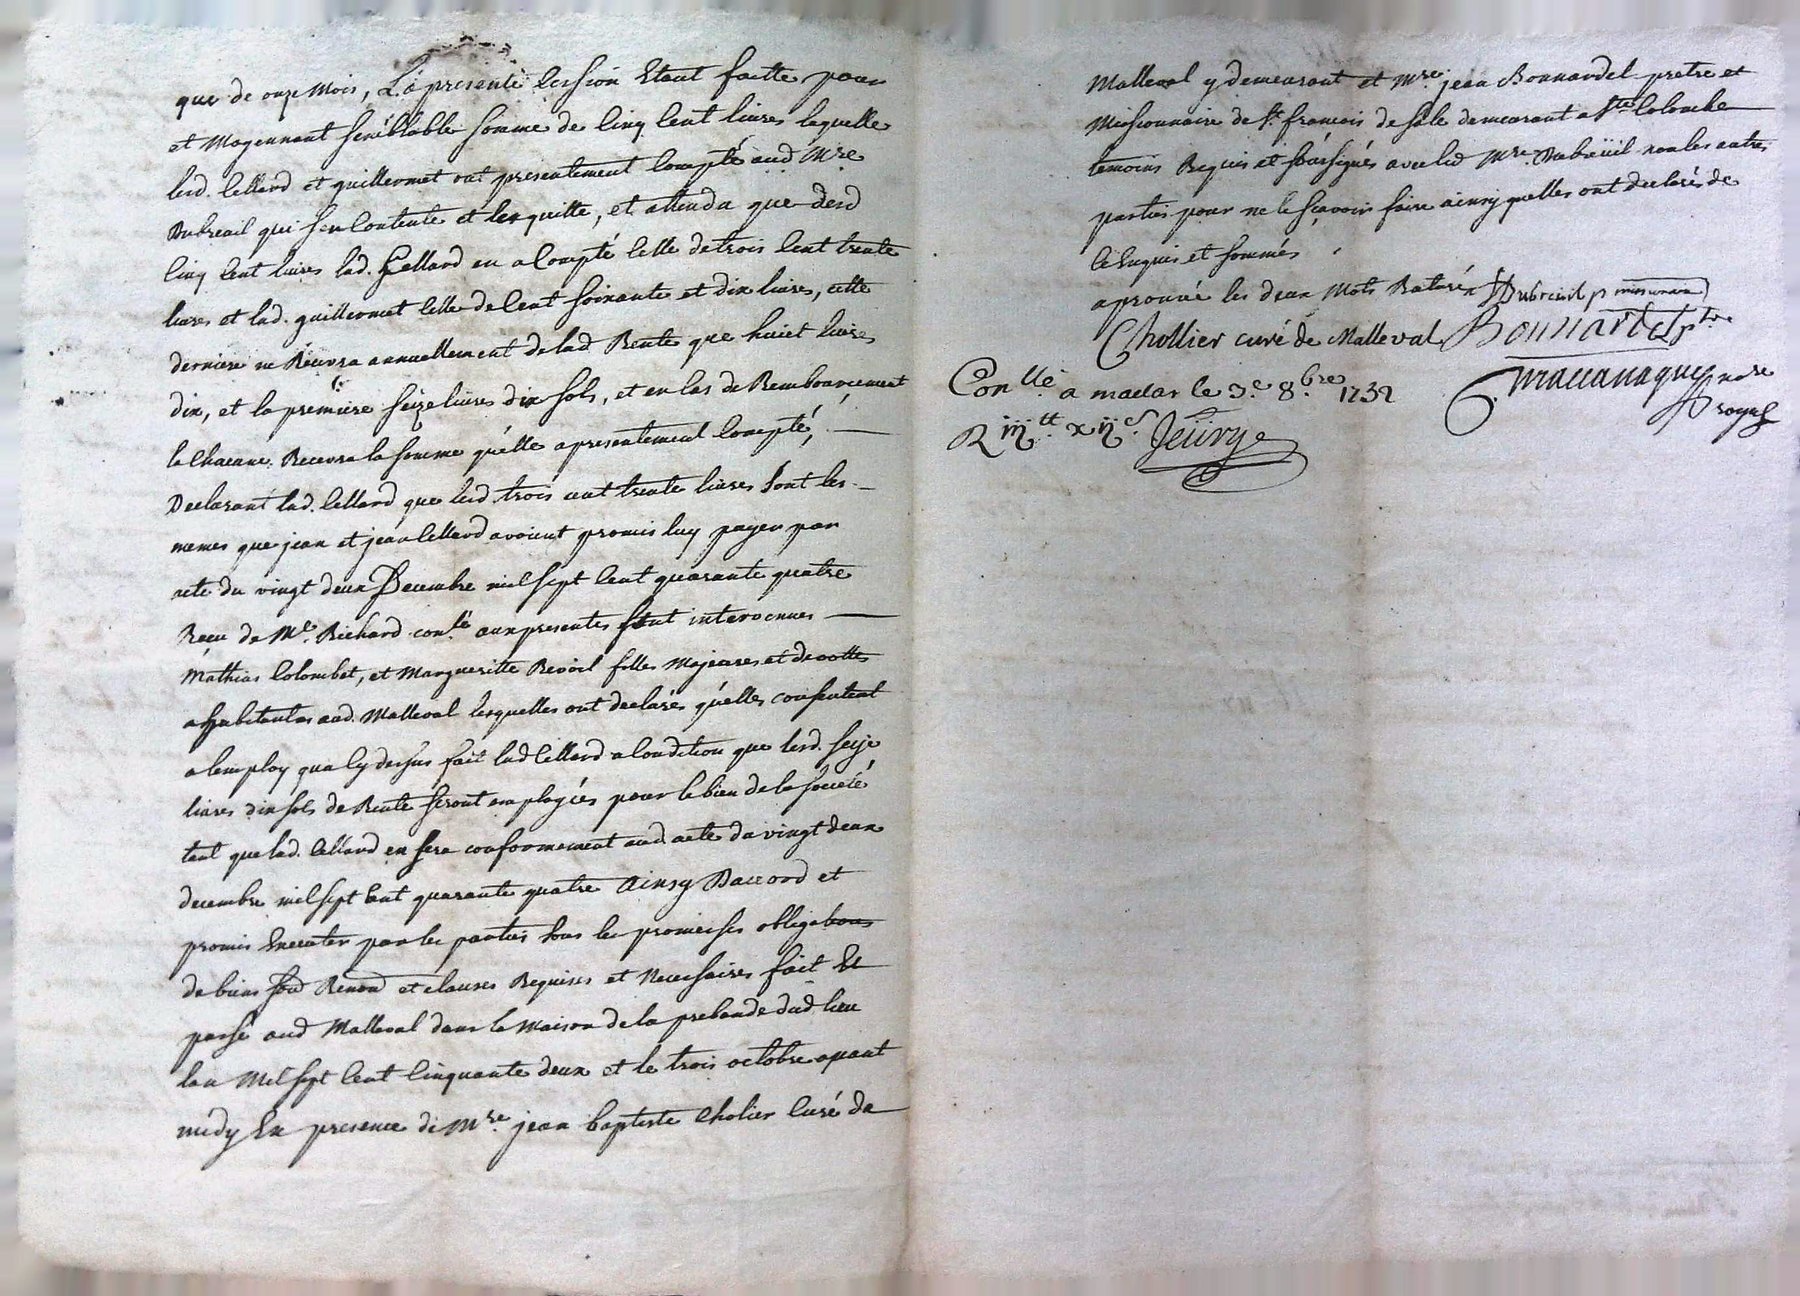 que de onze mois, La presente cession Etant faitte pour
et Moyennant semblable somme de Cinq Cent livres laquelle
lesd. Cellard et guillermet ont presentement Compté aud Mre
Dubreuil qui sen Contente et les quitte, et attendu que desd
Cinq Cent livres lad. Cellard en a Compté Celle de trois Cent trente
livres et lad. guillermet Celle de Cent soixante et dix livres, cette
derniere ne Recevra annuellement de lad Rente que huict livres
dix, et la premiere seize livres dix sols, et en Cas de Rembourcement
la Chacune Recevra la somme qu'elle a presentement Compté,
Declarant lad. Cellard que lesd. trois cent trente livres sont les
memes que jean et jean Cellard avoient promis luy payer par
acte du vingt deux Decembre mil sept Cent quarante quatre
Recu de Me. Richard con.lé aux presentes sont intervenues
Mathias Colombet, et Margueritte Revoil filles Majeures et devottes
habitantes aud. Malleval lesquelles ont declarés qu'elles consentent
a lemploy qua Cy dessus fait lad Cellard a Condition que lesd. seize
livres dix sols de Rente seront employées pour le bien de la société
tant que lad. Cellard en sera conformement aud. acte du vingt deux
decembre mil sept Cent quarante quatre Ainsy Daccord et
promis Executer par les parties sous les promesses obligations
de biens soud Renond et clauses Requises et Necessaires fait Et
passé aud Malleval dans la maison de la prebande dud. lieu
lan Mil sept Cent Cinquante deux et le trois octobre avant
midy En presence de Mre. jean baptiste Cholier Curé de
Malleval y demeurant et Mre. jean Bonnardel pretre et
Missionnaire de St. francois de sale demeurant a Ste Colombe
temoins Requis et soussignés avec led Mre. Dubreüil non les autres
parties pour ne le sçavoir faire ainsy quelles ont declarés de
Ce Enquis et sommés
aprouvé les deux Mots Raturés Dubreuil p
Chollier curé de Malleval Bonnardel ptre
Con.llé a maclas le 3e 8bre 1752
R iij tt xij s Jeürye
nore
royal